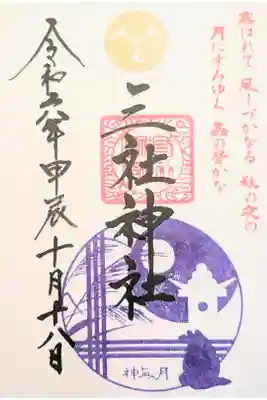 雲はれて 風しづかなる 秋の夜の
月にすみゆく 蟲の聲かな
三社神社
令和六年甲辰十月十八日
神無月